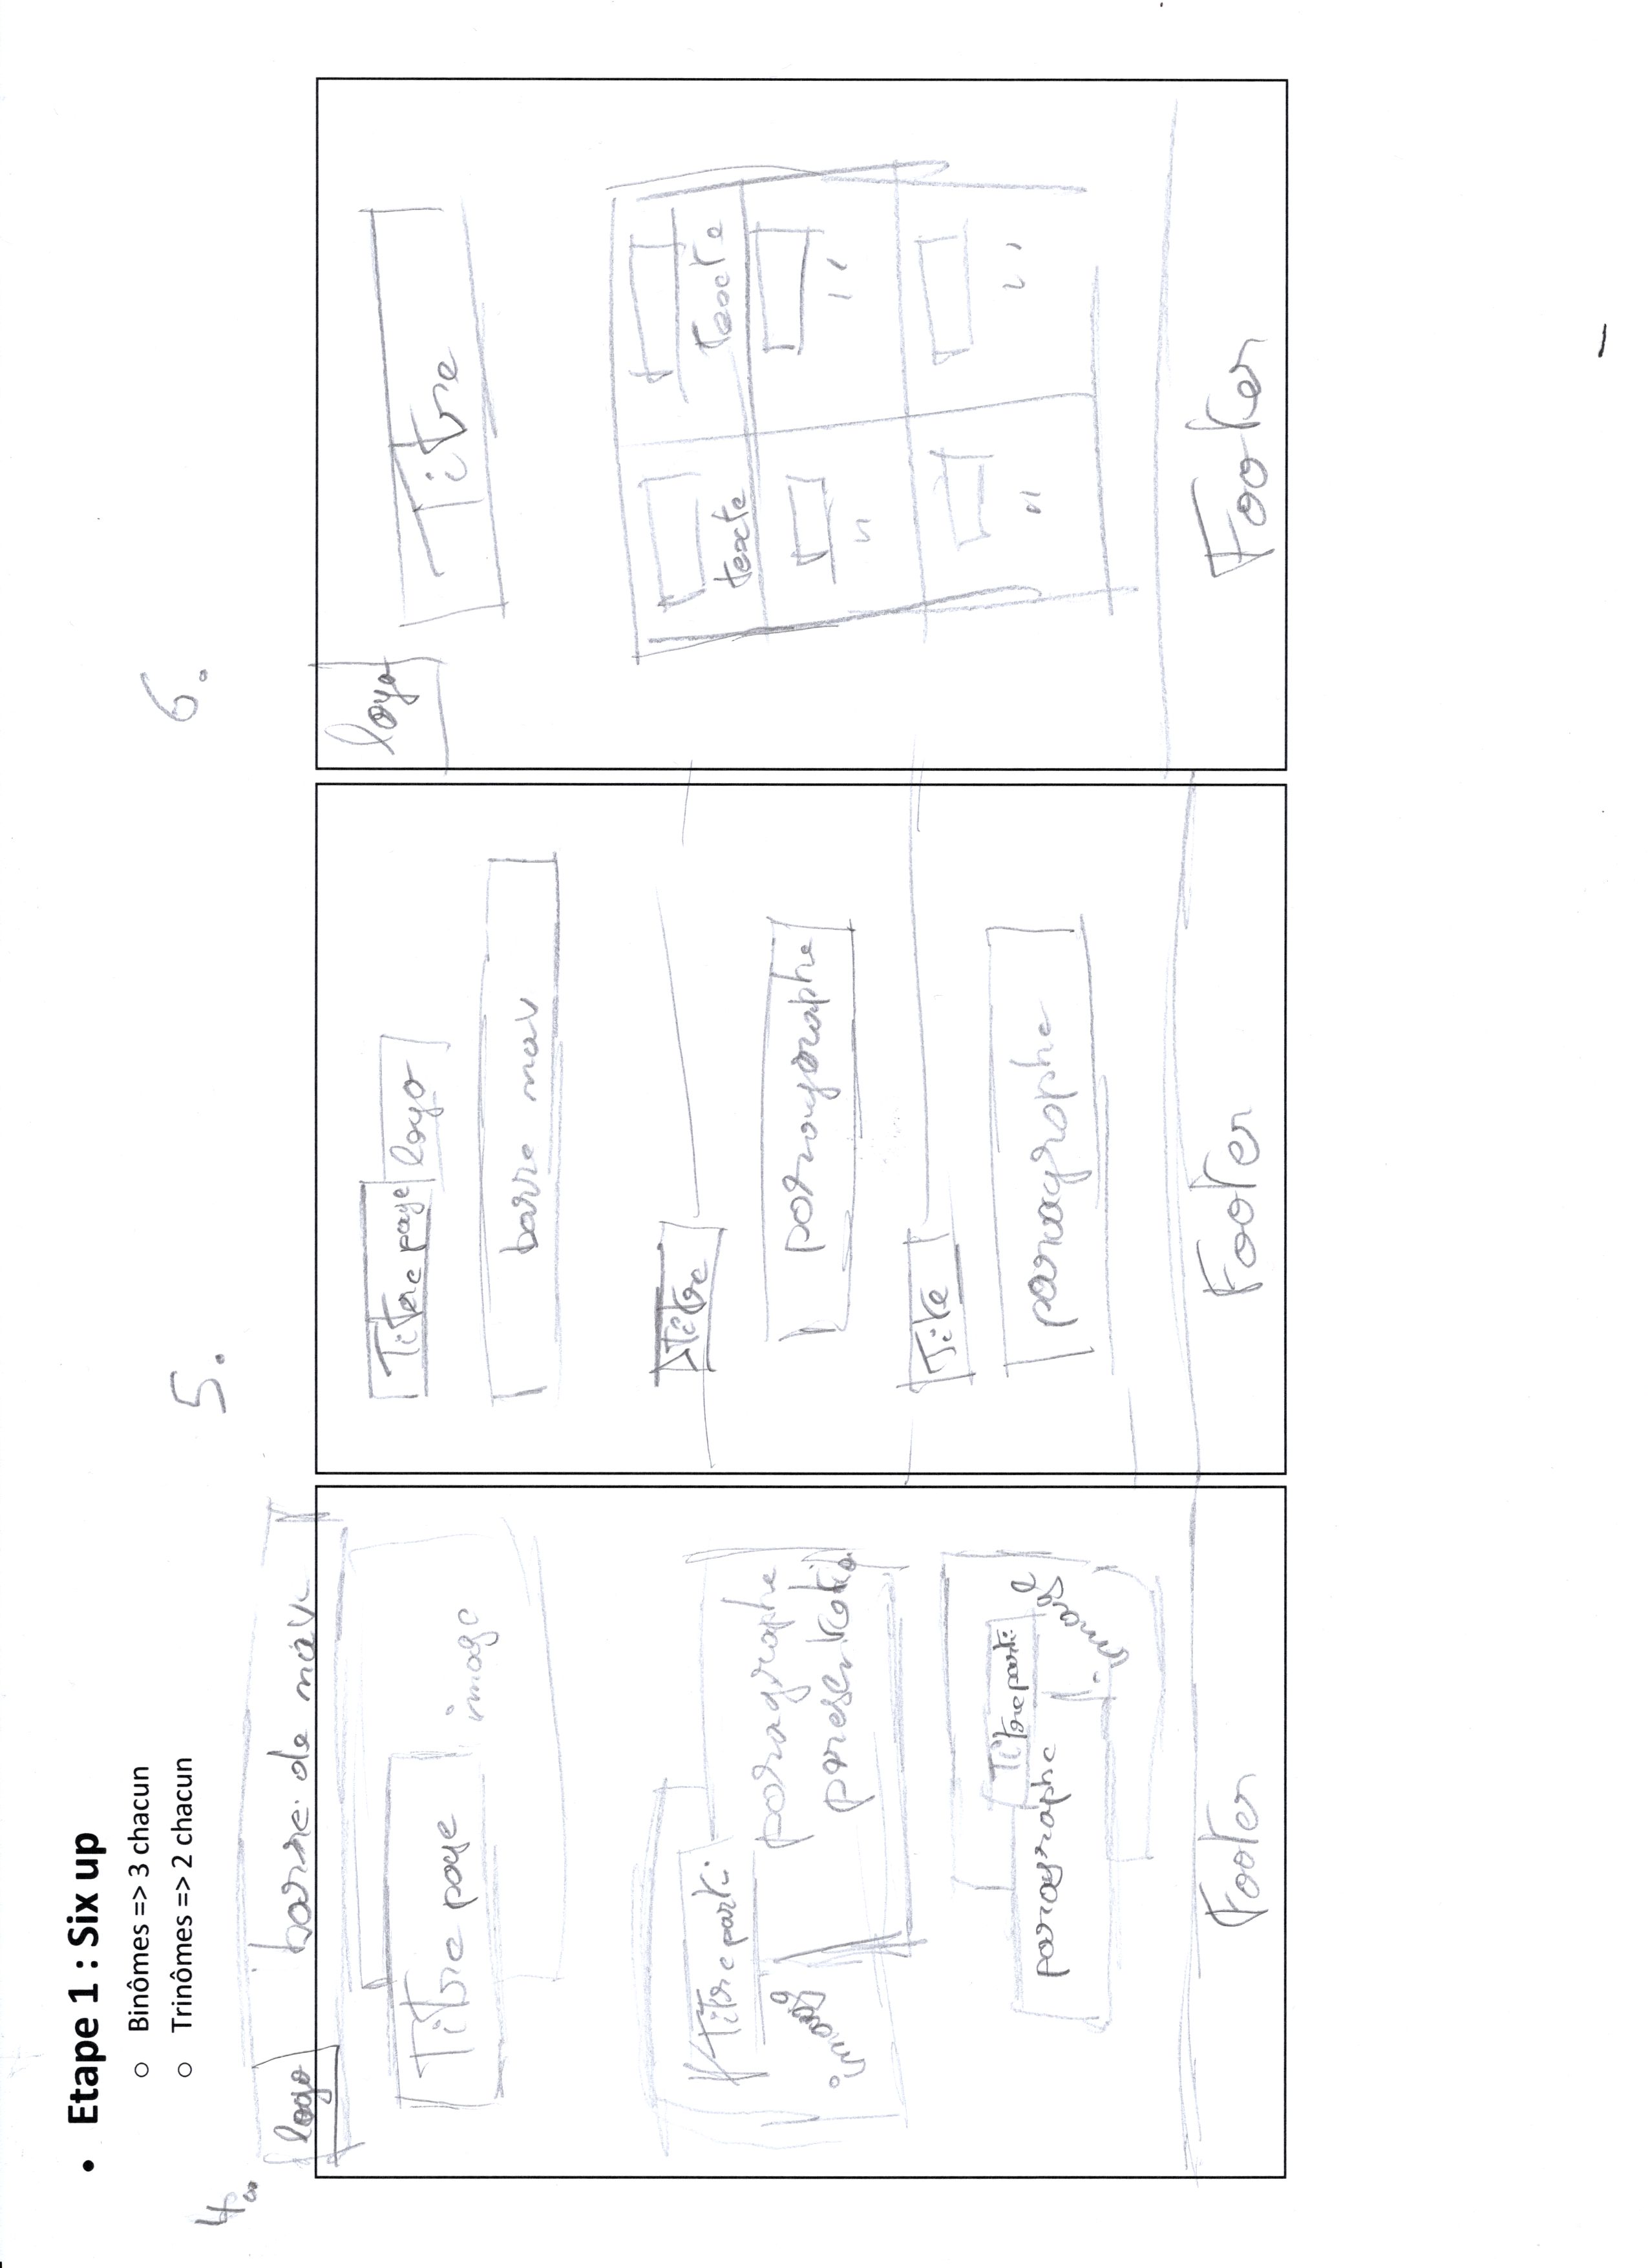 • Etape 1 : Six up
o Binômes => 3 chacun
o Trinômes => 2 chacun
4.
logo barre de nav
Titre page
image
Titre parti
image
paragraphe
presentatio
Titre parti
paragraphe
image
Footer
5.
Titre page logo
barre nav
Titre
paragraphe
Titre
paragraphe
Footer
6.
logo
Titre
texte texte
" "
" "
Footer